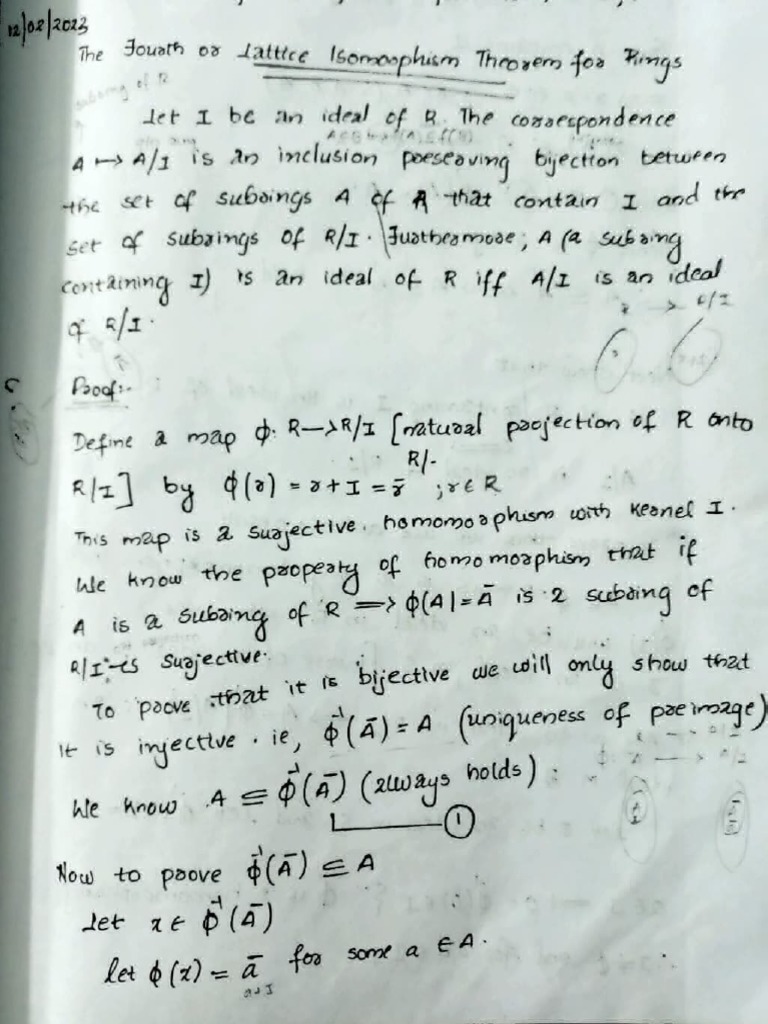 12/02/2023
The Fourth or Lattice Isomorphism Theorem for Rings
Let I be an ideal of R. The correspondence
A ↦ A/I is an inclusion preserving bijection between
the set of subrings A of R that contain I and the
set of subrings of R/I. Furthermore, A (a subring
containing I) is an ideal of R iff A/I is an ideal
of R/I.
Proof:-
Define a map ϕ: R→R/I [natural projection of R onto
R/I] by ϕ(r) = r+I = r̄ ; r ∈ R
This map is a surjective homomorphism with kernel I.
We know the property of homomorphism that if
A is a subring of R ⟹ ϕ(A) = Ā is a subring of
R/I is surjective.
To prove that it is bijective we will only show that
It is injective. ie, ϕ⁻¹(Ā) = A (uniqueness of preimage)
We know A ⊆ ϕ⁻¹(Ā) (always holds)
①
Now to prove ϕ⁻¹(Ā) ⊆ A
Let x ∈ ϕ⁻¹(Ā)
let ϕ(x) = ā for some a ∈ A.
a+I